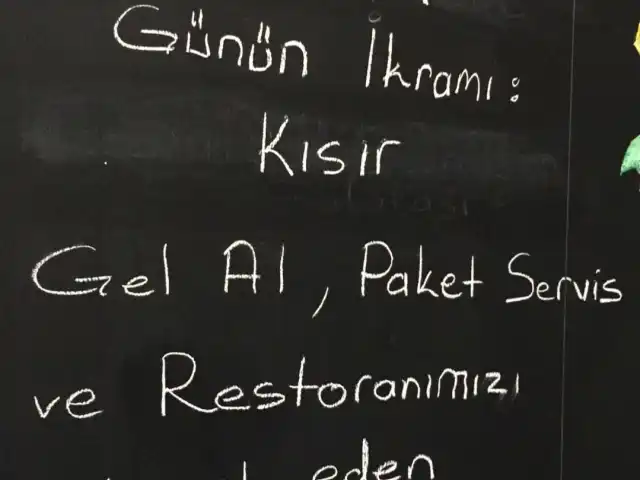 Günün İkramı:
Kısır
Gel Al, Paket Servis
ve Restoranımızı
eden